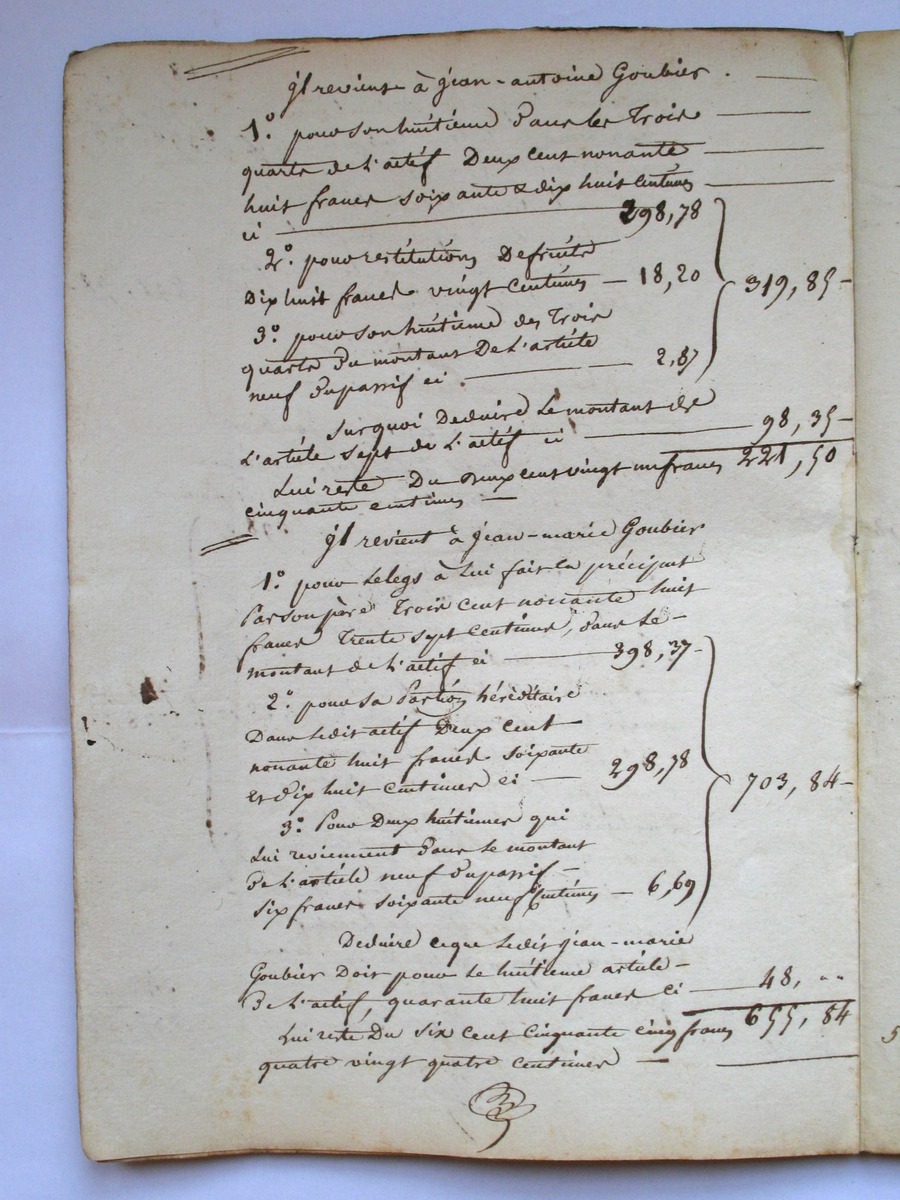 jl revient à jean-antoine Goubier.
1.° pour son huitieme Dans les Trois
quarts de l'actif Deux cent nonante
huit francs soixante & dix huit centimes
ci 298,78
2.° pour restitutions De fruits
Dix huit francs vingt centimes — 18,20
319,85
3.° pour son huitieme des Trois
quarts Du montant De L'article
neuf Du passif ci . 2,87
sur quoi Deduire Le montant de
L'article sept de L'actif ci 98,35
Lui reste Du Deux cent vingt un francs 221,50
cinquante centimes —
jl revient à jean-marie Goubier
1.° pour Le legs à Lui fait en préciput
Par son père Trois cent nonante huit
francs Trente sept centimes, Dans Le
montant de L'actif ci 398,37
2.° pour sa Portion héréditaire
Dans Ledit actif Deux cent
nonante huit francs soixante
et Dix huit centimes ci — 298,78
703,84
3.° Pour Deux huitiemes qui
Lui reviennent Dans Le montant
De L'article neuf Du passif —
six francs soixante neuf centimes — 6,69
Deduire ce que Ledit jean-marie
Goubier Doit pour Le huitieme article
De L'actif, quarante huit francs ci 48, ..
Lui reste Du six cent cinquante cinq francs 655,84
quatre vingt quatre centimes —